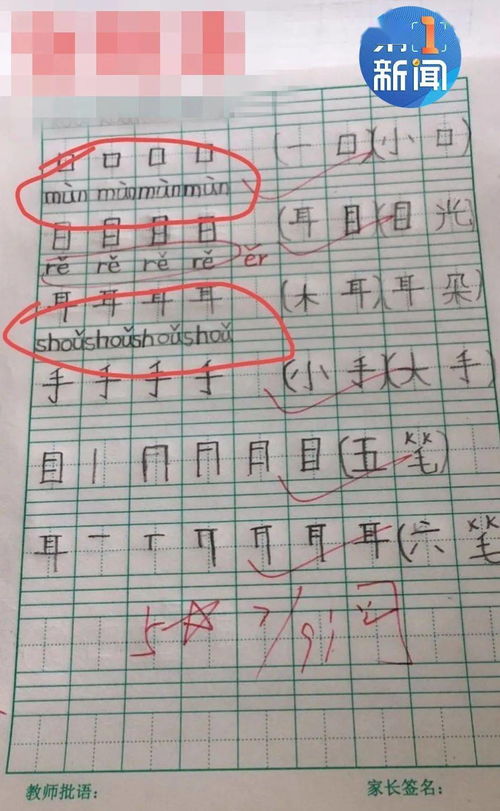 第1
新闻
口 口 口 口 (一 口)(小 口)
mùn mùn mùn mùn
目 目 目 目 (耳 目)(目 光)
rě rě rě rě ěr
耳 耳 耳 耳 (木 耳)(耳 朵)
shoǔ shoǔ shoǔ shoǔ
手 手 手 手 (小 手)(大 手)
目 丨 目 (五 笔)
耳 一 耳 (六 笔
5☆ 7/9
教师批语: 家长签名: